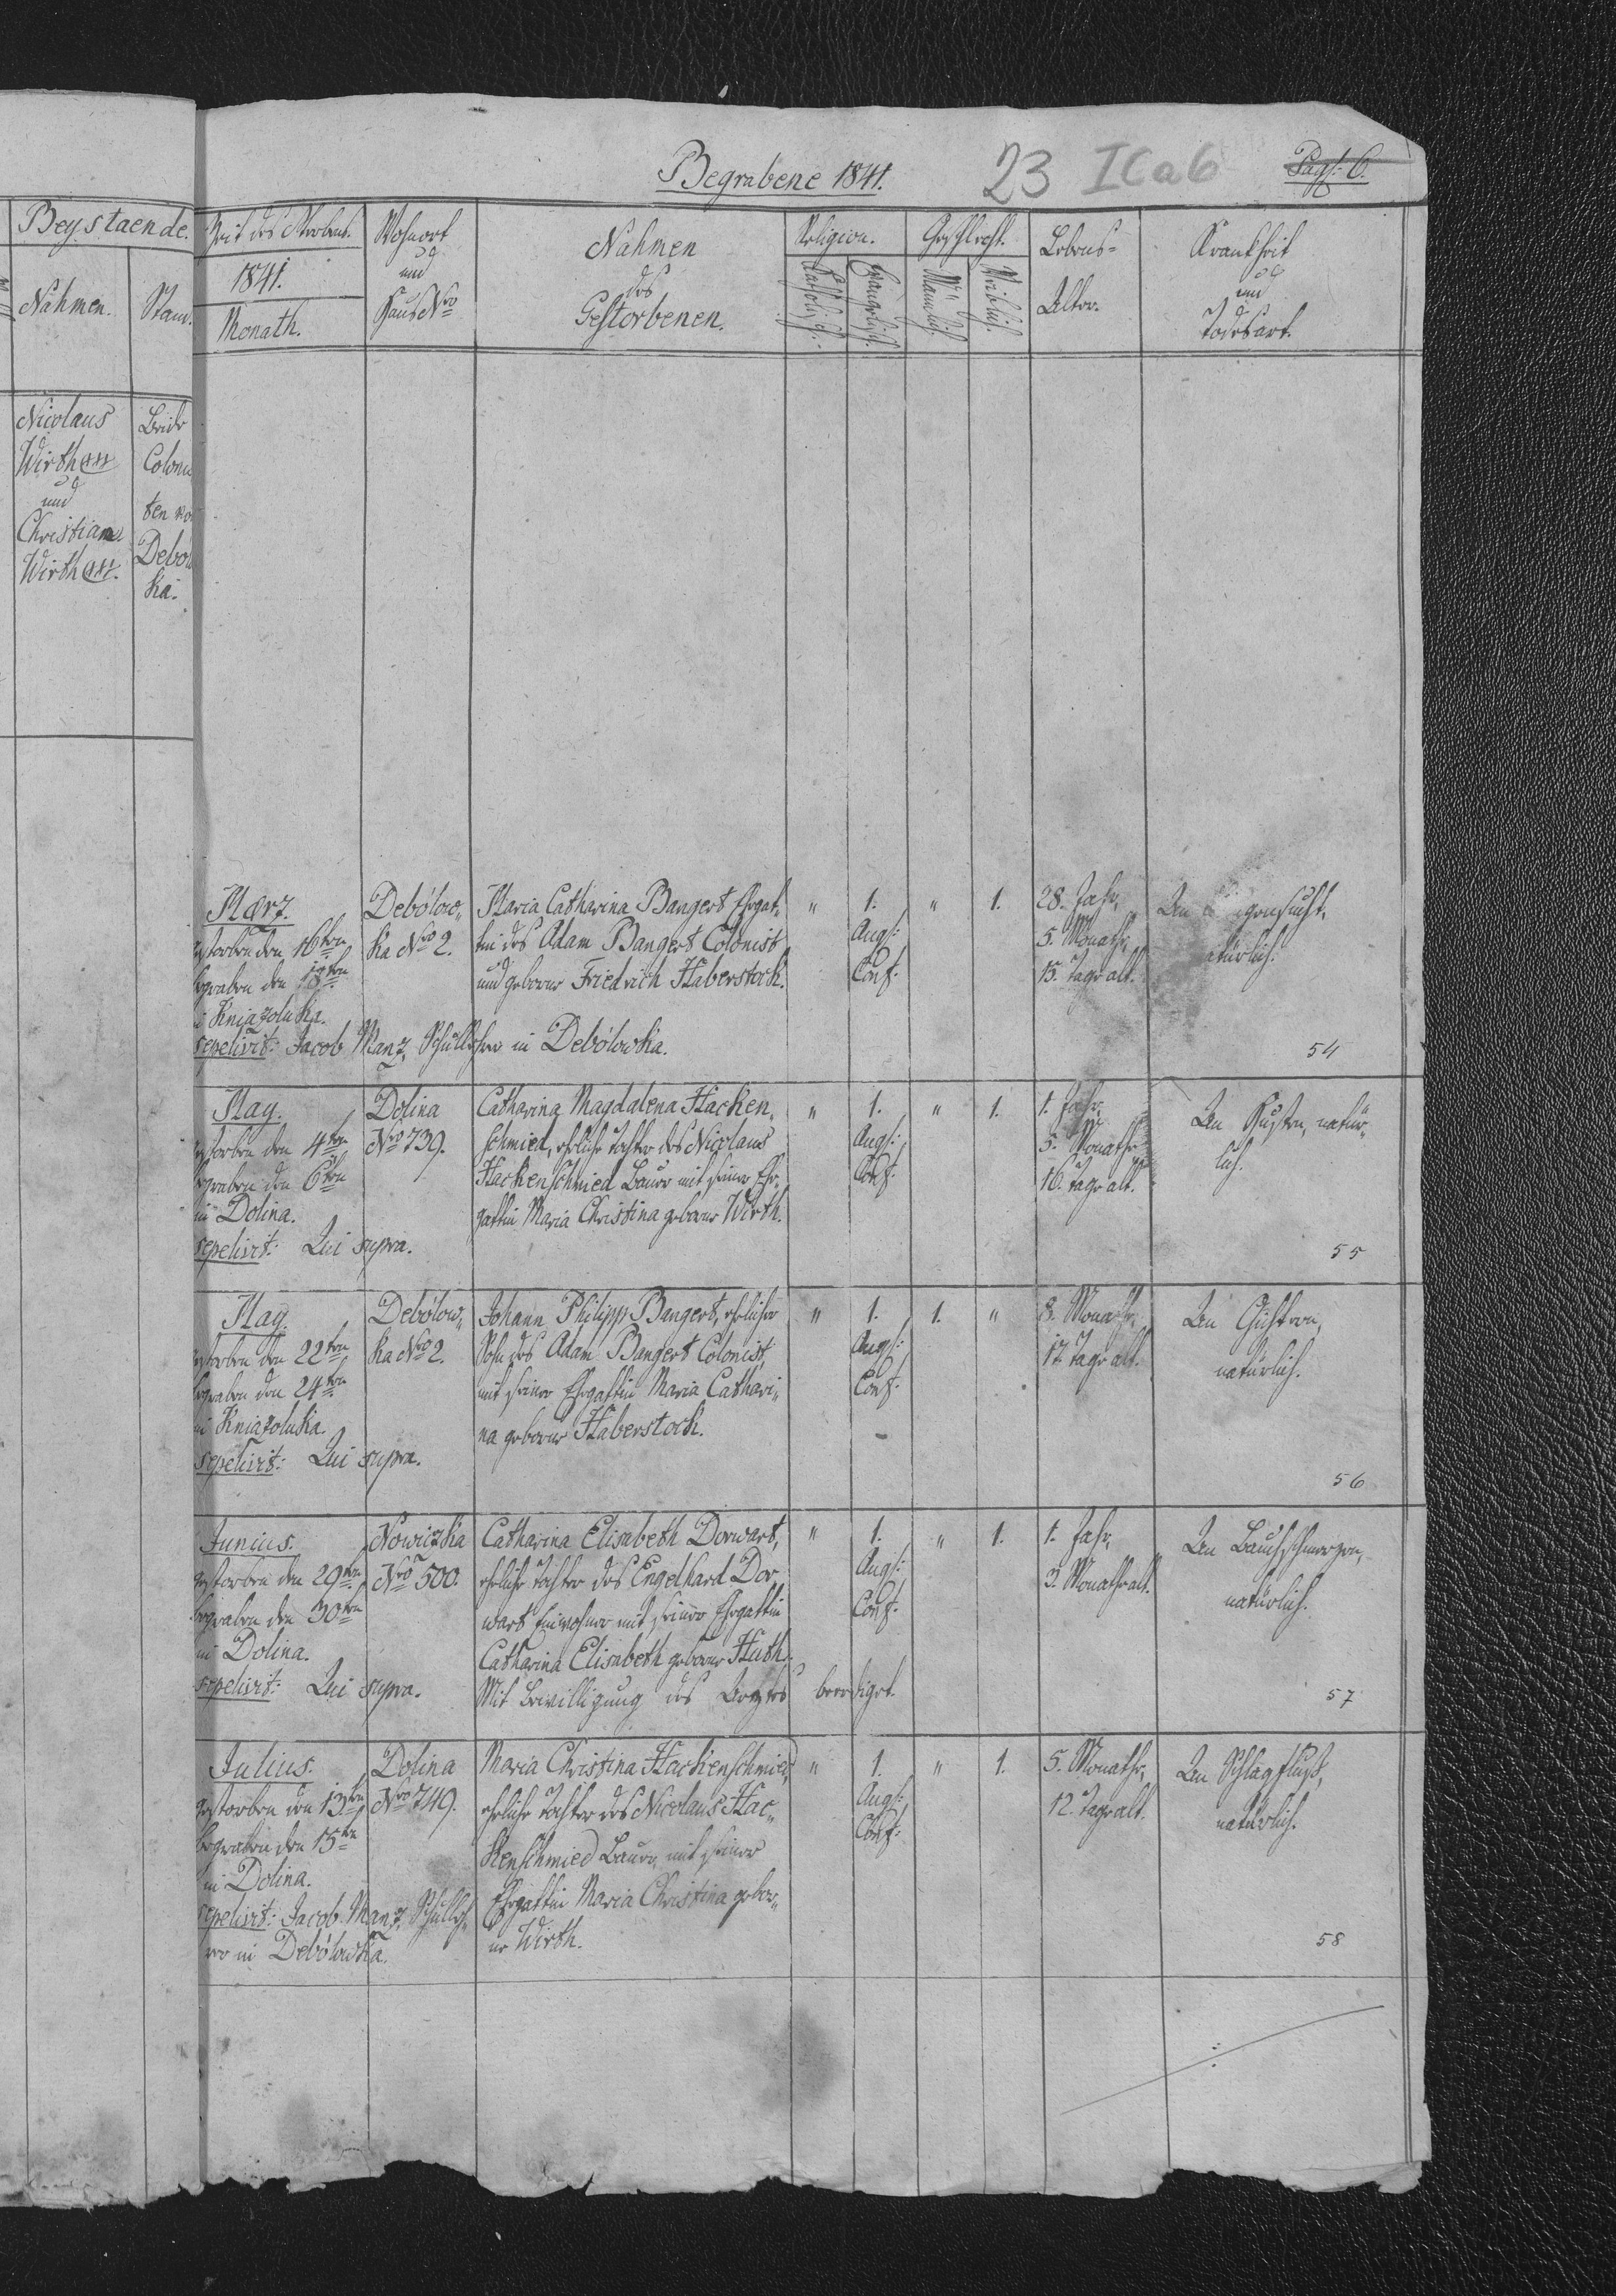 Begrabene 1841.
23 ICa6
Pag: 6.
Beystaende.
Nahmen. Stan.
Nicolaus
Wirth xxx
und
Christian
Wirth xxx.
Beide
Coloni
ten vo
Debó
ka.
Zeit des Sterbens.
1841.
Monath.
Wohnort
und
Haus Nro
Nahmen
des
Gestorbenen.
Religion.
Katholisch.
Evangelisch.
Geschlecht.
Männlich.
Weiblich.
Lebens-
Alter.
Krankheit
und
Todesart.
Maerz.
gestorben den 16ten
begraben den 18ten
in Kniazoluka.
sepelivit: Jacob Manz, Schullehrer in Debólowka.
Debólow„
ka Nro 2.
Maria Catharina Bangert Ehegat„
tin des Adam Bangert Colonist
und geborne Friedrich Haberstock.
" 1. " 1.
Augs:
Conf:
28. Jahr,
5. Monathe,
15. Tage alt.
An
natürlich.
54
May.
gestorben den 4ten
begraben den 6ten
in Dolina.
sepelivit: Qui supra.
Dolina
Nro 739.
Catharina Magdalena Hacken„
schmied, eheliche Tochter des Nicolaus
Hackenschmied Bauer mit seiner Ehe„
gattin Maria Christina geborne Wirth.
" 1. " 1.
Augs:
Conf:
1. Jahr,
5. Monathe,
16. Tage alt.
An Husten, natür„
lich.
55
May.
gestorben den 22ten
begraben den 24ten
in Kniazoluka.
sepelivit: Qui supra.
Debólow„
ka Nro 2.
Johann Philipp Bangert, ehelicher
Sohn des Adam Bangert Colonist,
mit seiner Ehegattin Maria Cathari„
na geborne Haberstock.
" 1. 1. "
Augs:
Conf:
8. Monathe,
17. Tage alt.
An Gichtern,
natürlich.
56
Junius.
gestorben den 29ten
begraben den 30ten
in Dolina.
sepelivit: Qui supra.
Nowiczka
Nro 500.
Catharina Elisabeth Dorwart,
eheliche Tochter des Engelhard Dor
wart Einwohner mit seiner Ehegattin
Catharina Elisabeth geborne Huth.
Mit Bewilligung des Arztes beerdiget.
" 1. " 1.
Augs:
Conf:
1. Jahr,
3. Monathe alt.
An Bauchschmerzen,
natürlich.
57
Julius.
gestorben den 13ten
begraben den 15ten
in Dolina.
sepelivit: Jacob Manz, Schulleh„
rer in Debólowka.
Dolina
Nro 749.
Maria Christina Hackenschmied,
eheliche Tochter des Nicolaus Hac„
kenschmied Bauer, mit seiner
Ehegattin Maria Christina gebor„
ne Wirth.
" 1. " 1.
Augs:
Conf:
5. Monathe,
12. Tage alt.
An Schlagfluß,
natürlich.
58